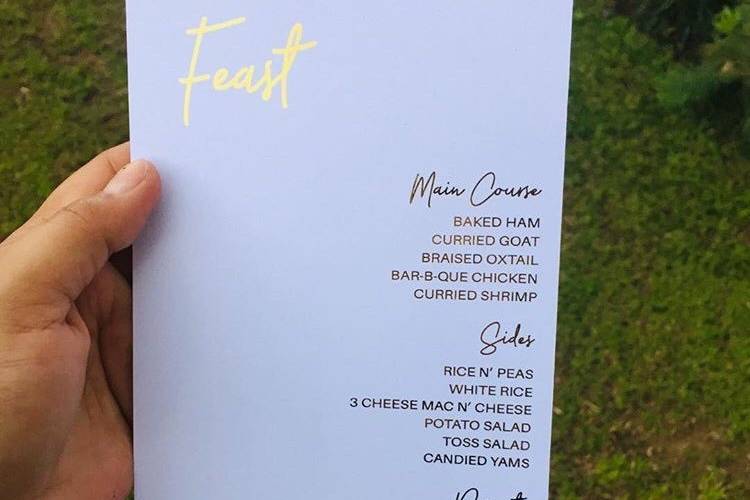 Feast
Main Course
BAKED HAM
CURRIED GOAT
BRAISED OXTAIL
BAR-B-QUE CHICKEN
CURRIED SHRIMP
Sides
RICE N' PEAS
WHITE RICE
3 CHEESE MAC N' CHEESE
POTATO SALAD
TOSS SALAD
CANDIED YAMS